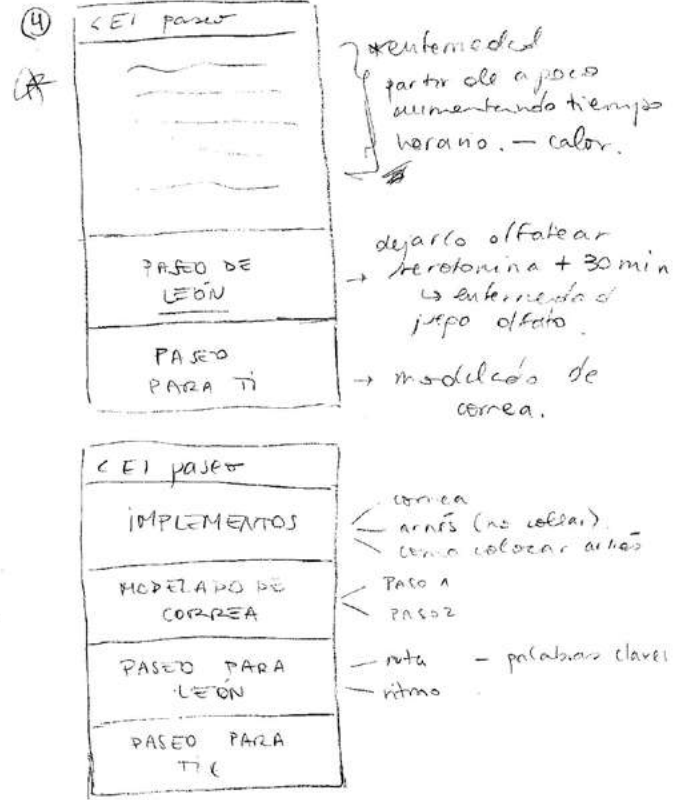 4
< El paseo
* enfermedad
partir de a poco
aumentando tiempo
horario. — calor.
PASEO DE
LEÓN
→ dejarlo olfatear
serotonina + 30 min
↳ enfermedad
juego olfato.
PASEO
PARA TI
→ modelado de
correa.
< El paseo
IMPLEMENTOS
correa
arnés (no collar).
como colocar arnés
MODELADO DE
CORREA
PASO 1
PASO 2
PASEO PARA
LEÓN
ruta - palabras claves
ritmo
PASEO PARA
TI